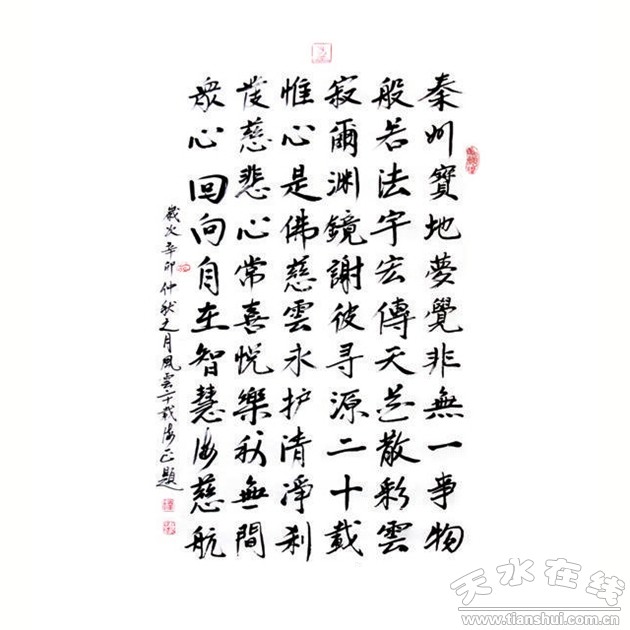 秦州寶地夢覺非無一事物
般若法宇宏傳天花散彩雲
寂爾淵鏡謝彼寻源二十載
惟心是佛慈雲永护清淨刹
發慈悲心常喜悅樂利無間
眾心回向自在智慧海慈航
歲次辛卯仲秋之月風雲二十載海正題
天水在线
www.tianshui.com.cn